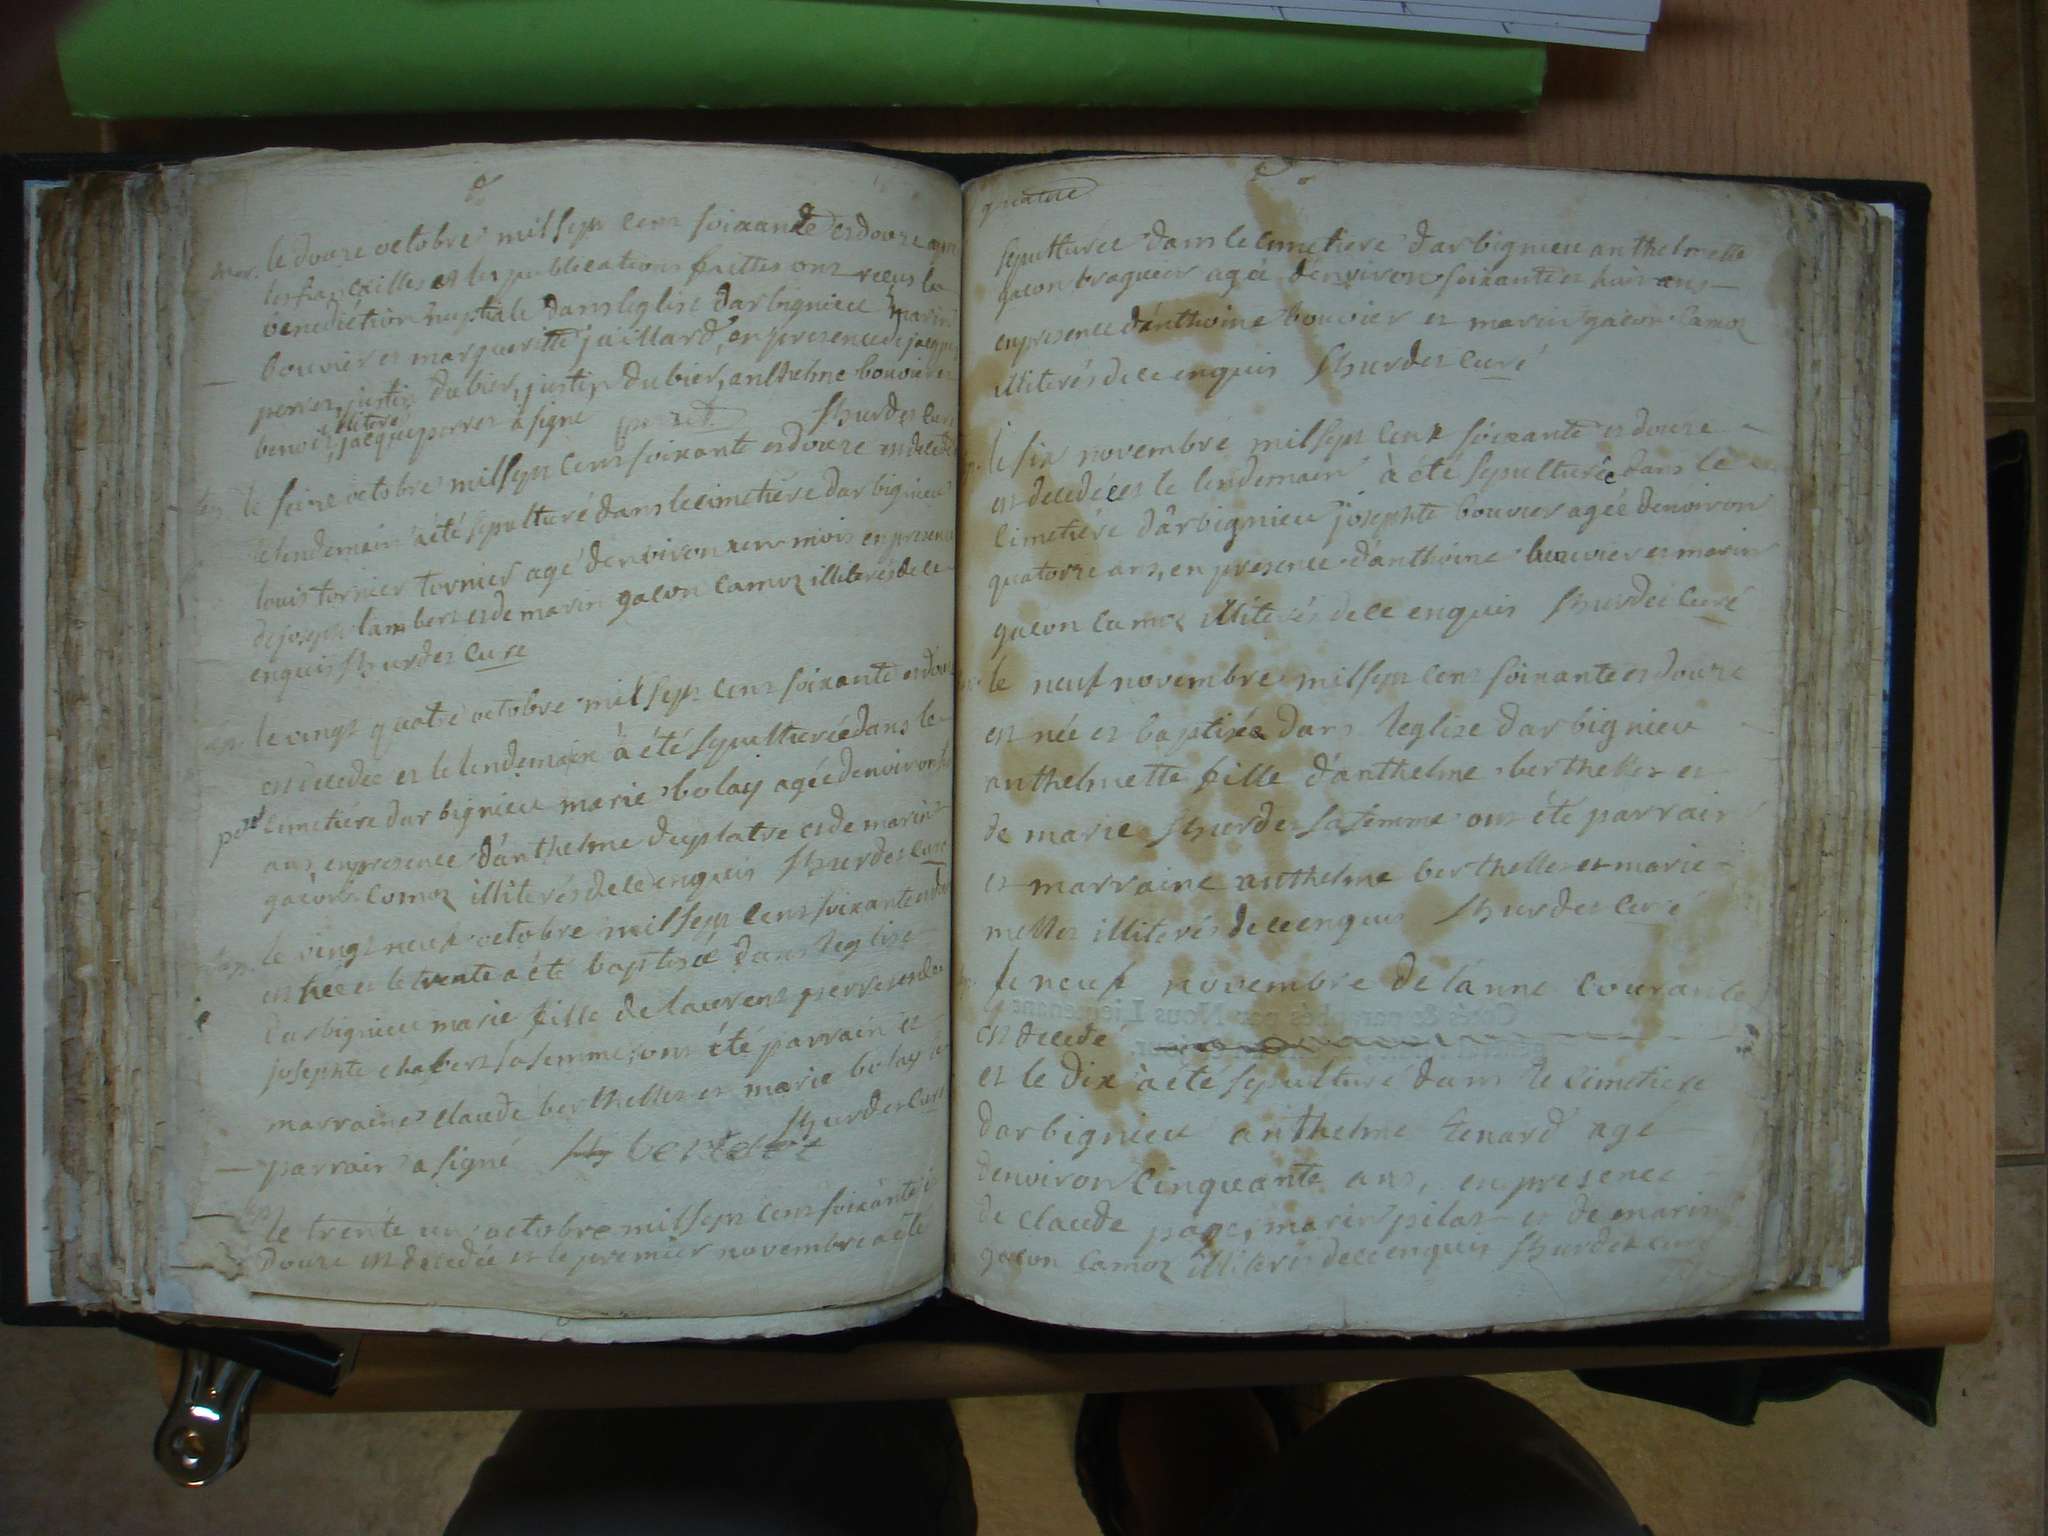 mar. le douze octobre mil sept cent soixante et douze apres
les fiancailles et les publications faittes ont receus la
benediction nuptiale dans leglise darbignieu marin
bouvier et margueritte juillard, en presence de jacque
perret, justin dubier, justin dubier, anthelme bouvier et
benoit illiteré
jacque perret a signé perret hurdet curé
le seize octobre mil sept cent soixante et douze est decedé
le lendemain a été sepulturé dans le cimetiére darbignieu
louis tornier tornier agé denviron mois en presence
de joseph lambert et de marin gacon camoz illiterés de ce
enquis hurdet curé
le vingt quatre octobre mil sept cent soixante et douze
est decedée et le lendemain a été sepulturée dans le
cimetiére darbignieu marie bolay agée denviron
ans en presence d'anthelme duplatre et de marin
gacon comoz illiterés de ce enquis hurdet curé
le vingt neuf octobre mil sept cent soixante et douze
est née et le trente a été baptisée dans leglise
darbignieu marie fille de laurent perret et de
josephte chabert sa femme, ont été parrain et
marraine claude berthellet et marie bolay le
parrain a signé bertelet hurdet curé
sep. le trente un octobre mil sept cent soixante et
douze est decedée et le premier novembre a été
quatre
sepulturée dans le cimetiére darbignieu anthelmette
gacon braguier agée d'environ soixante et huit ans
en presence d'anthoine bouvier et marin gacon camoz
illiterés de ce enquis hurdet curé
le six novembre mil sept cent soixante et douze
est decedée et le lendemain à été sepulturée dans le
cimetiére d'arbignieu josephte bouvier agée denviron
quatorze ans, en presence d'anthoine bouvier et marin
gacon camoz illiterés de ce enquis hurdet curé
le neuf novembre mil sept cent soixante et douze
est née et baptisée dans leglise darbignieu
anthelmette fille d'anthelme berthellet et
de marie hurdet sa femme ont été parrain
et marraine anthelme berthellet et marie
mettet illiterés de ce enquis hurdet curé
le neuf novembre de lanné courante
est decedé
et le dix a été sepulturé dans le cimetiere
darbignieu anthelme tenard agé
denviron cinquante ans, en presence
de claude page, marin pilat et de marin
gacon camoz illiterés de ce enquis hurdet curé